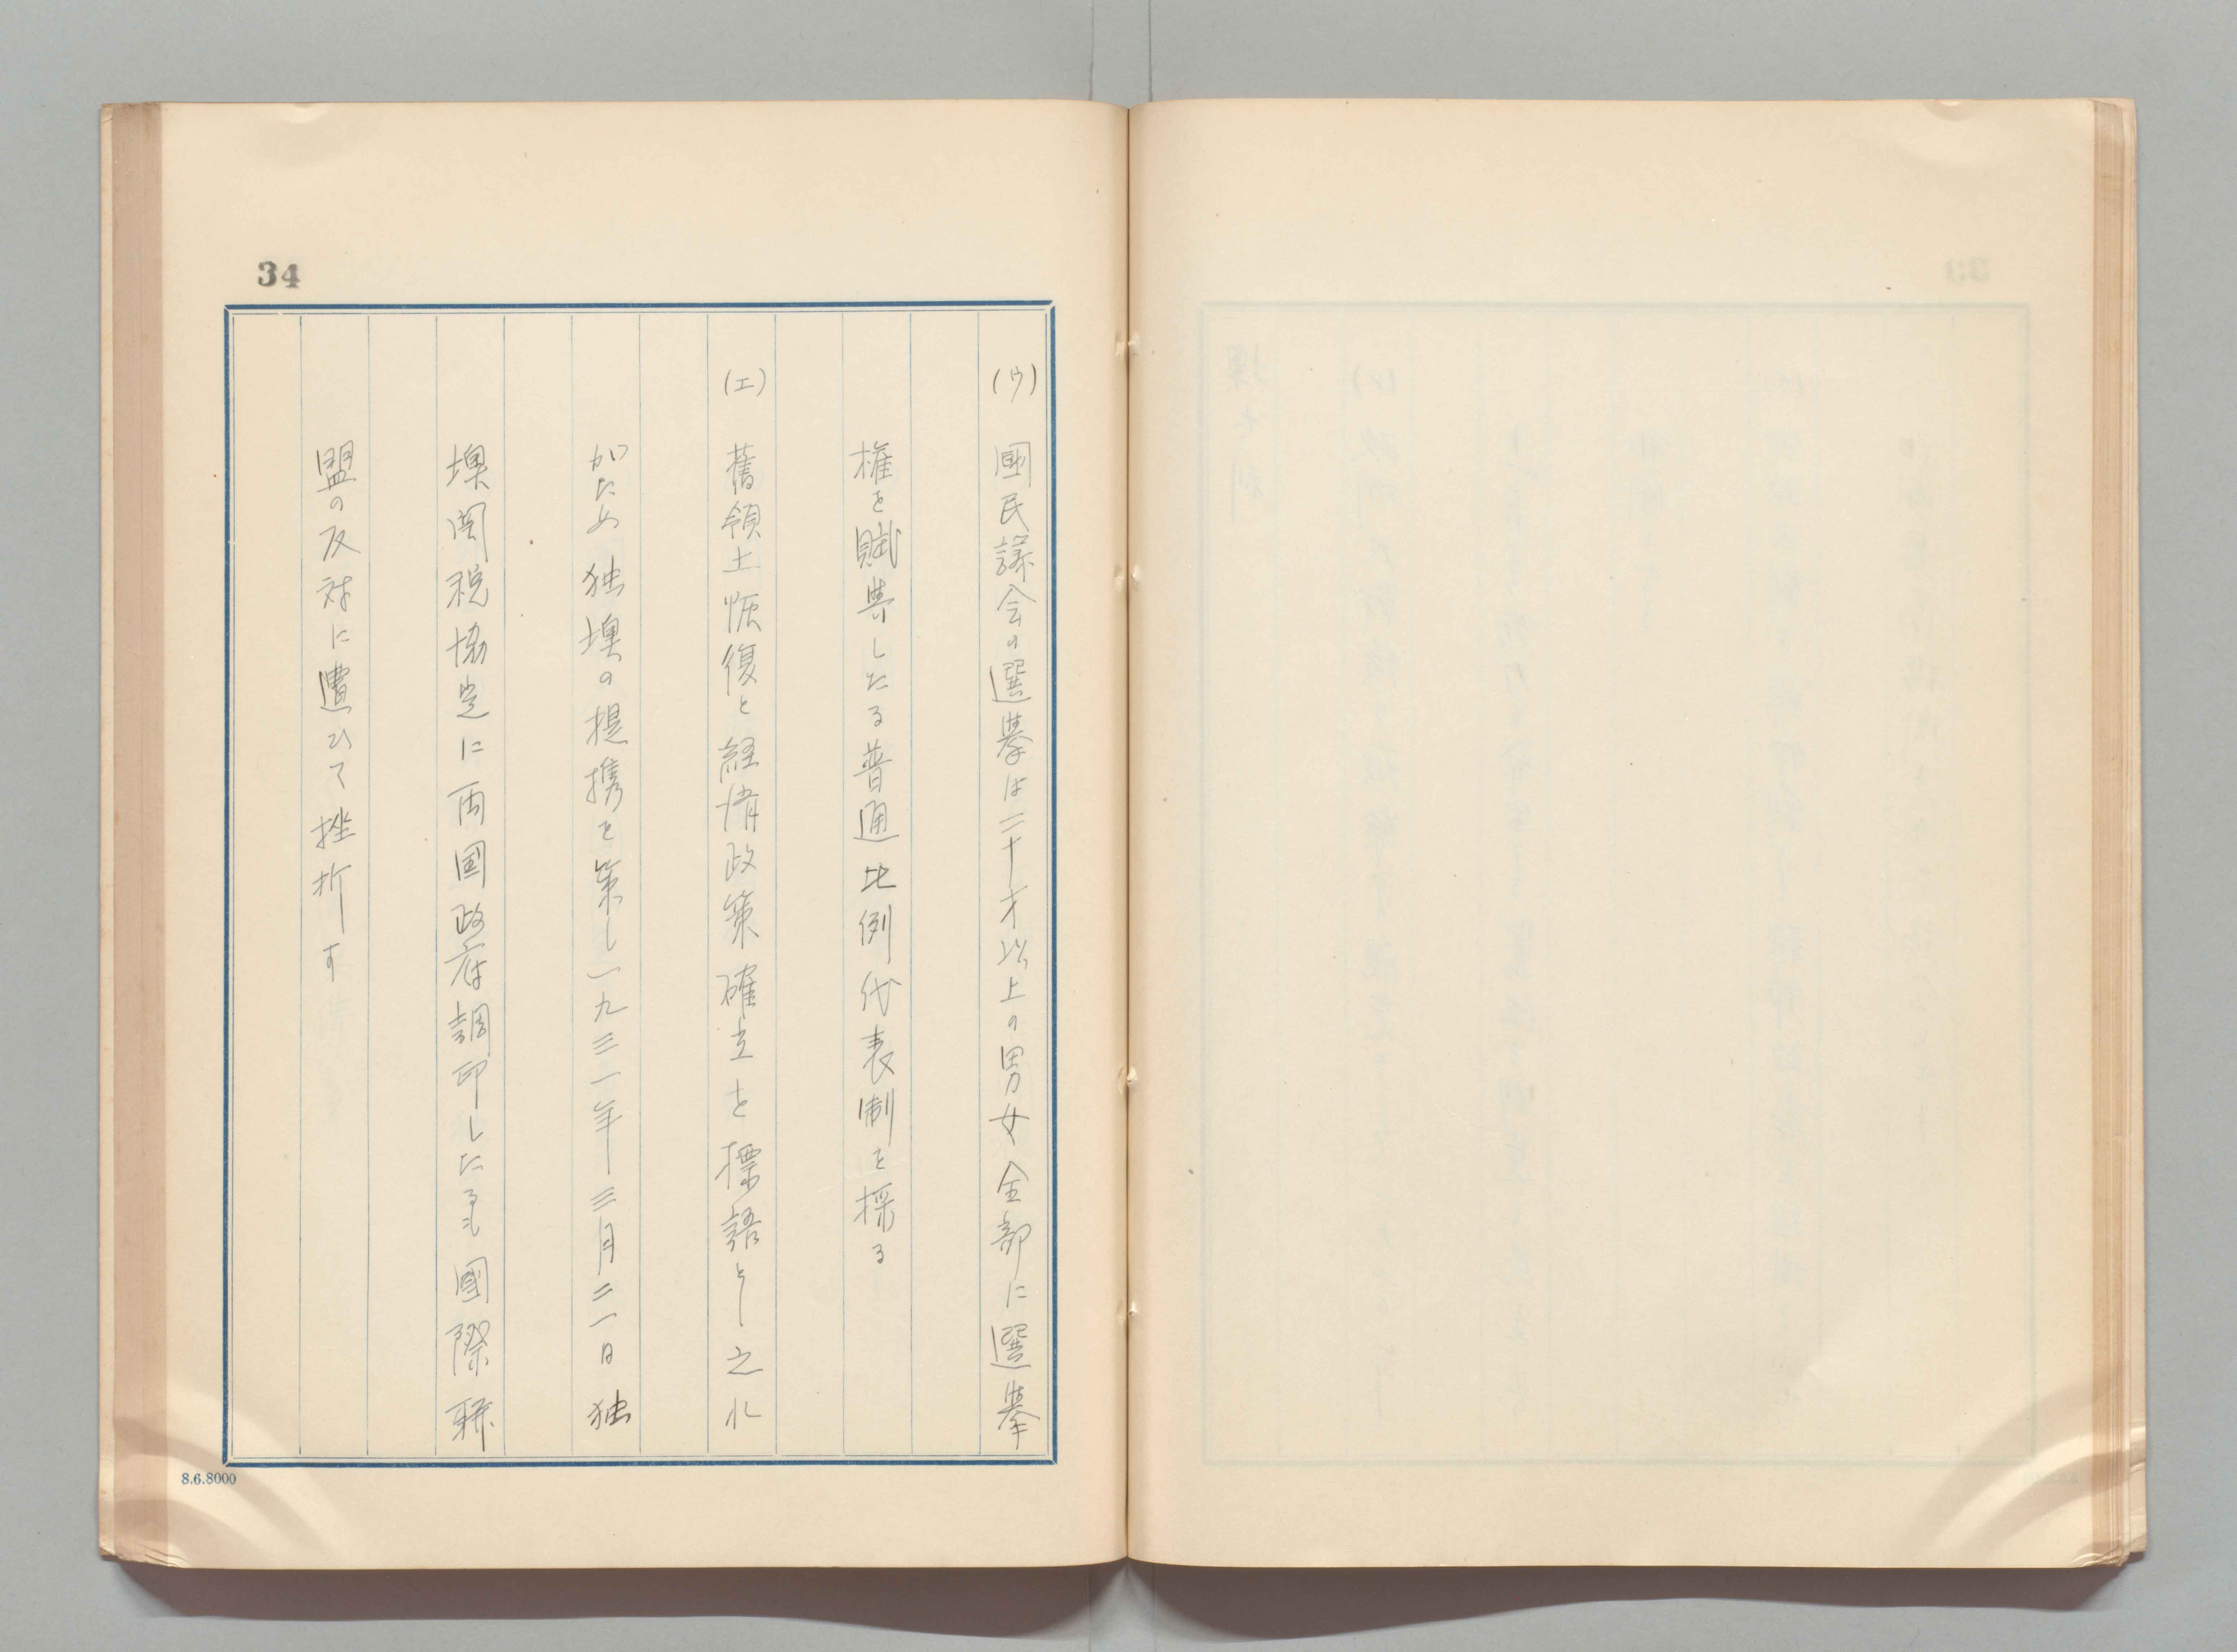 34
(ウ) 國民議会の選挙は二十才以上の男女全部に選挙
権を賦与したる普通比例代表制を採る
(エ) 舊領土恢復と経済政策確立を標語とし之れ
がため独墺の提携を策し一九三一年三月二一日独
墺関税協定に両国政府調印したるも國際聯
盟の反対に遭ひて挫折す
8.6.8000